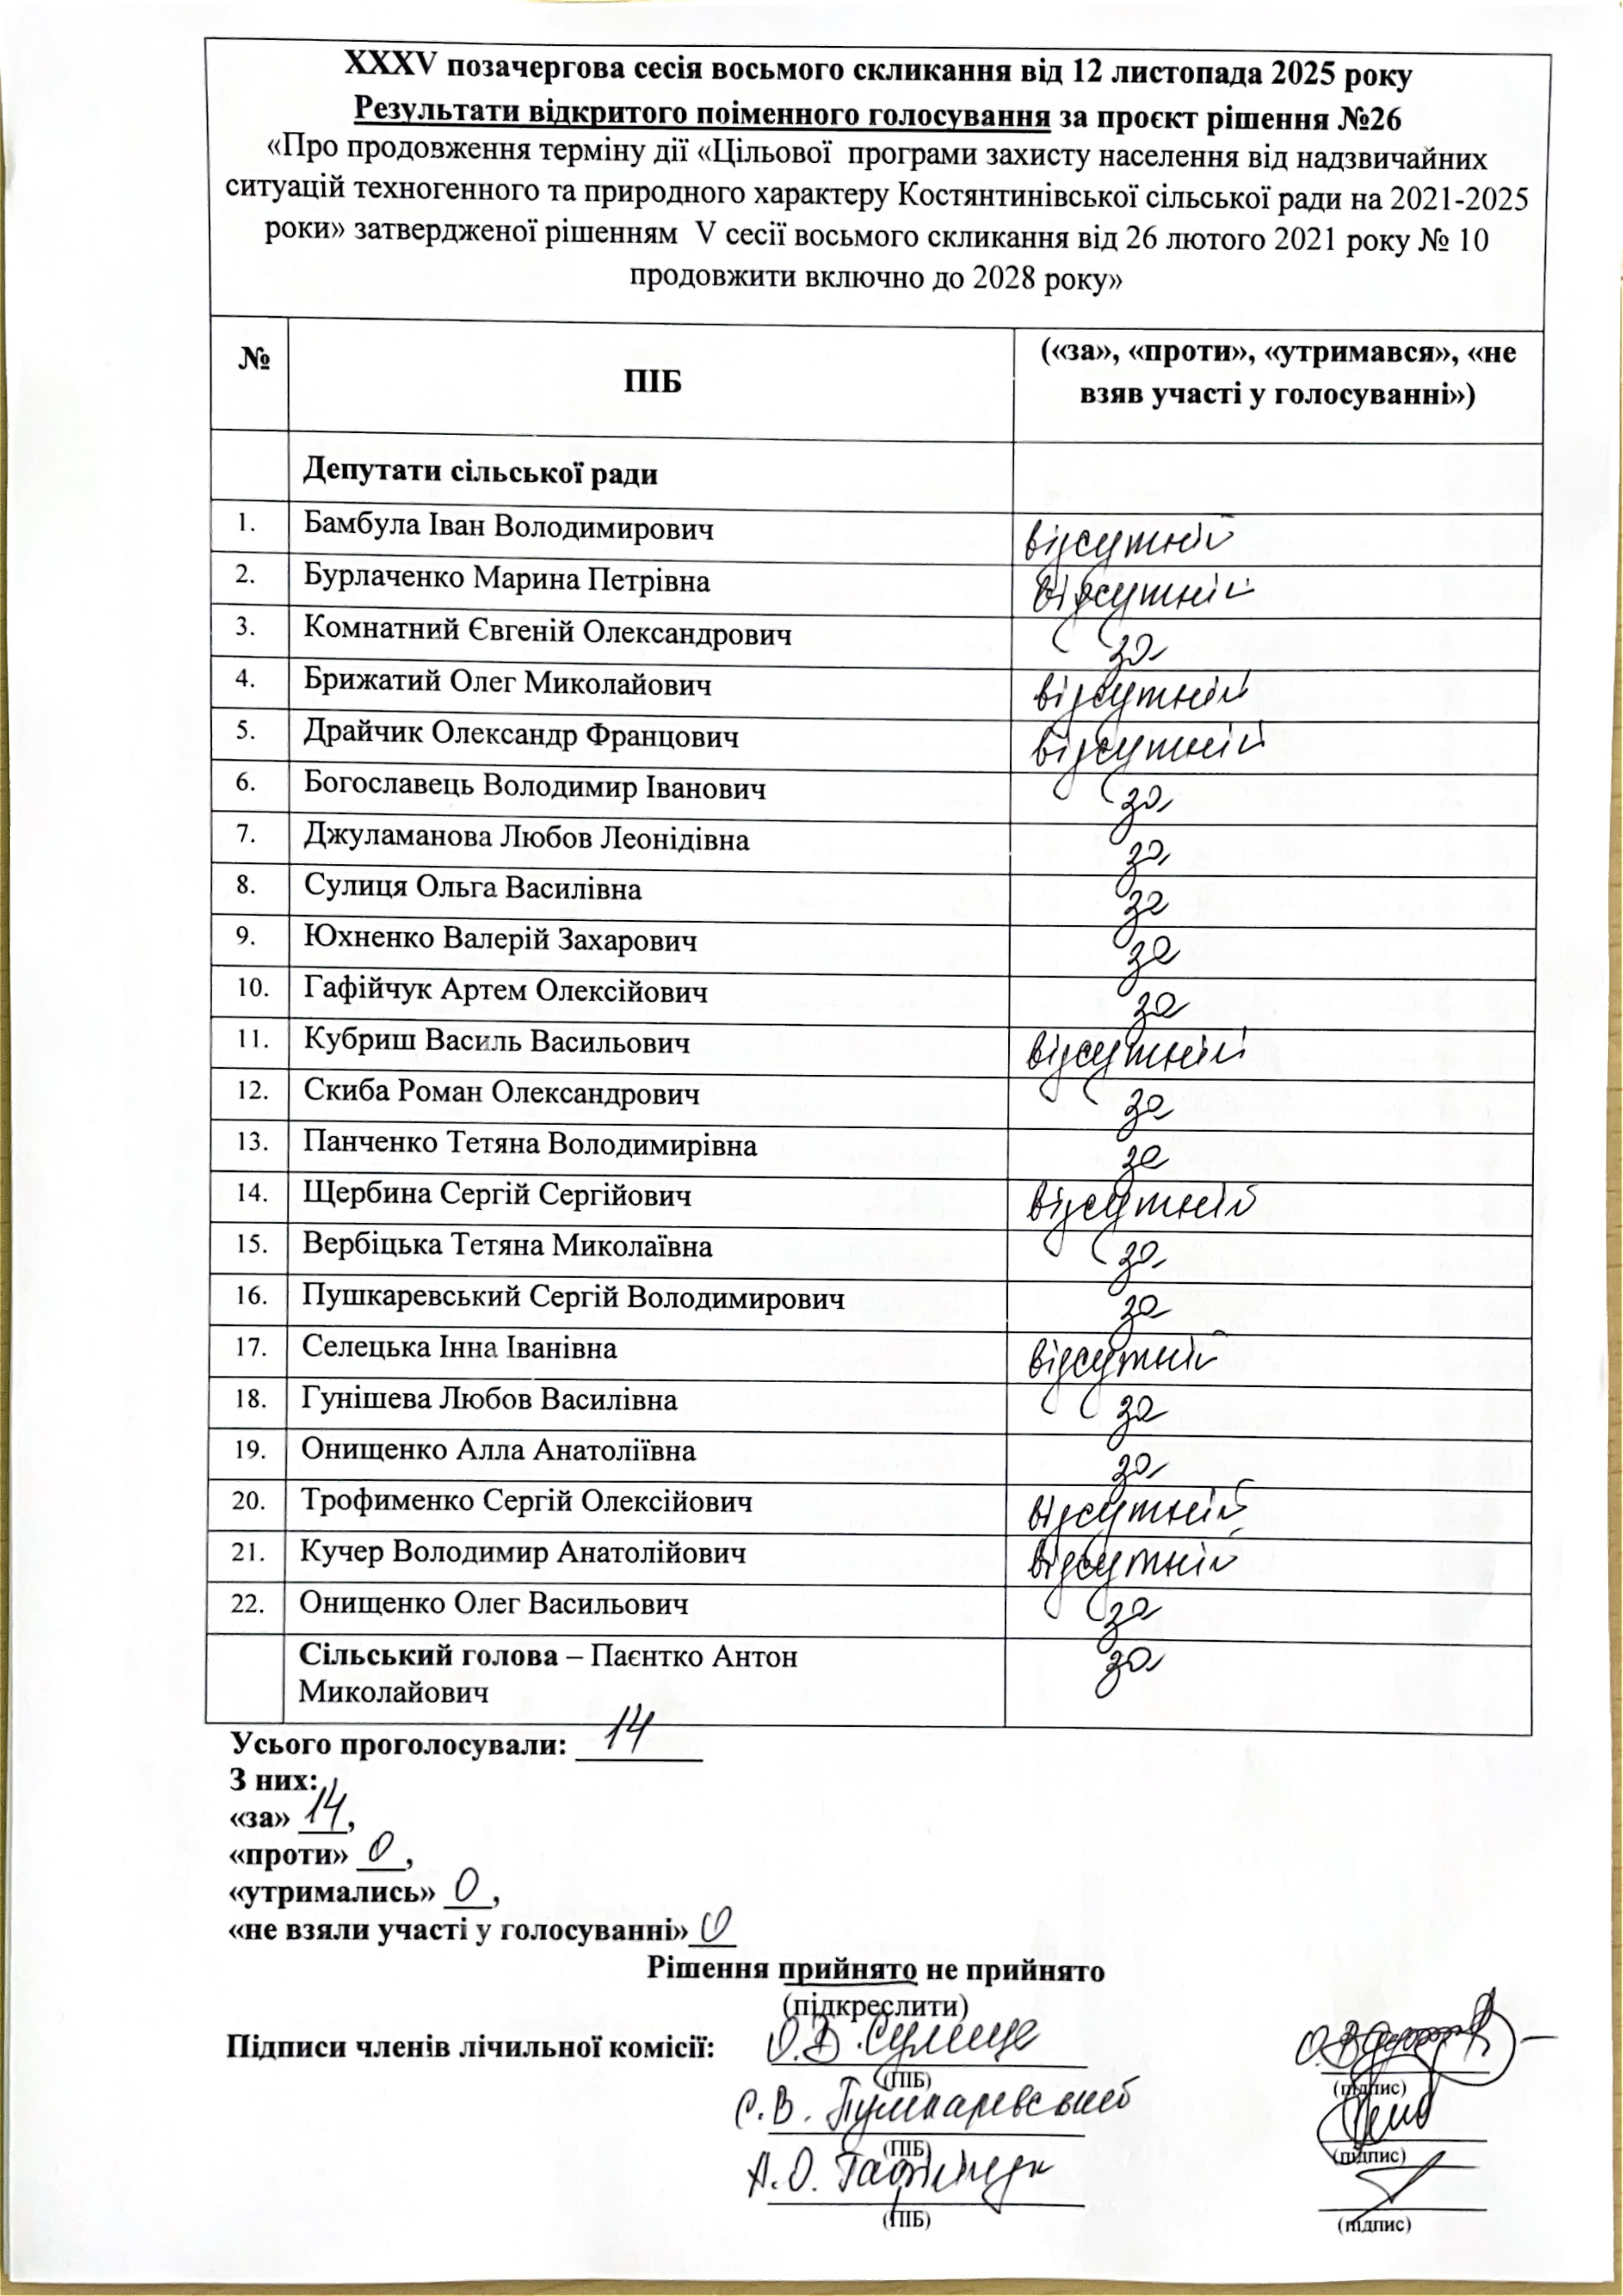 XXXV позачергова сесія восьмого скликання від 12 листопада 2025 року
Результати відкритого поіменного голосування за проєкт рішення №26
«Про продовження терміну дії «Цільової програми захисту населення від надзвичайних
ситуацій техногенного та природного характеру Костянтинівської сільської ради на 2021-2025
роки» затвердженої рішенням V сесії восьмого скликання від 26 лютого 2021 року № 10
продовжити включно до 2028 року»
№ ПІБ («за», «проти», «утримався», «не
взяв участі у голосуванні»)
Депутати сільської ради
1. Бамбула Іван Володимирович відсутній
2. Бурлаченко Марина Петрівна відсутній
3. Комнатний Євгеній Олександрович за
4. Брижатий Олег Миколайович відсутній
5. Драйчик Олександр Францович відсутній
6. Богославець Володимир Іванович за
7. Джуламанова Любов Леонідівна за
8. Сулиця Ольга Василівна за
9. Юхненко Валерій Захарович за
10. Гафійчук Артем Олексійович за
11. Кубриш Василь Васильович відсутній
12. Скиба Роман Олександрович за
13. Панченко Тетяна Володимирівна за
14. Щербина Сергій Сергійович відсутній
15. Вербіцька Тетяна Миколаївна за
16. Пушкаревський Сергій Володимирович за
17. Селецька Інна Іванівна відсутній
18. Гунішева Любов Василівна за
19. Онищенко Алла Анатоліївна за
20. Трофименко Сергій Олексійович відсутній
21. Кучер Володимир Анатолійович відсутній
22. Онищенко Олег Васильович за
Сільський голова – Паєнтко Антон
Миколайович за
Усього проголосували: 14
З них:
«за» 14,
«проти» 0,
«утримались» 0,
«не взяли участі у голосуванні» 0
Рішення прийнято не прийнято
(підкреслити)
Підписи членів лічильної комісії: О.В. Сулиця
(ПІБ) (підпис)
С.В. Пушкаревський
(ПІБ) (підпис)
А.О. Гафійчук
(ПІБ) (підпис)